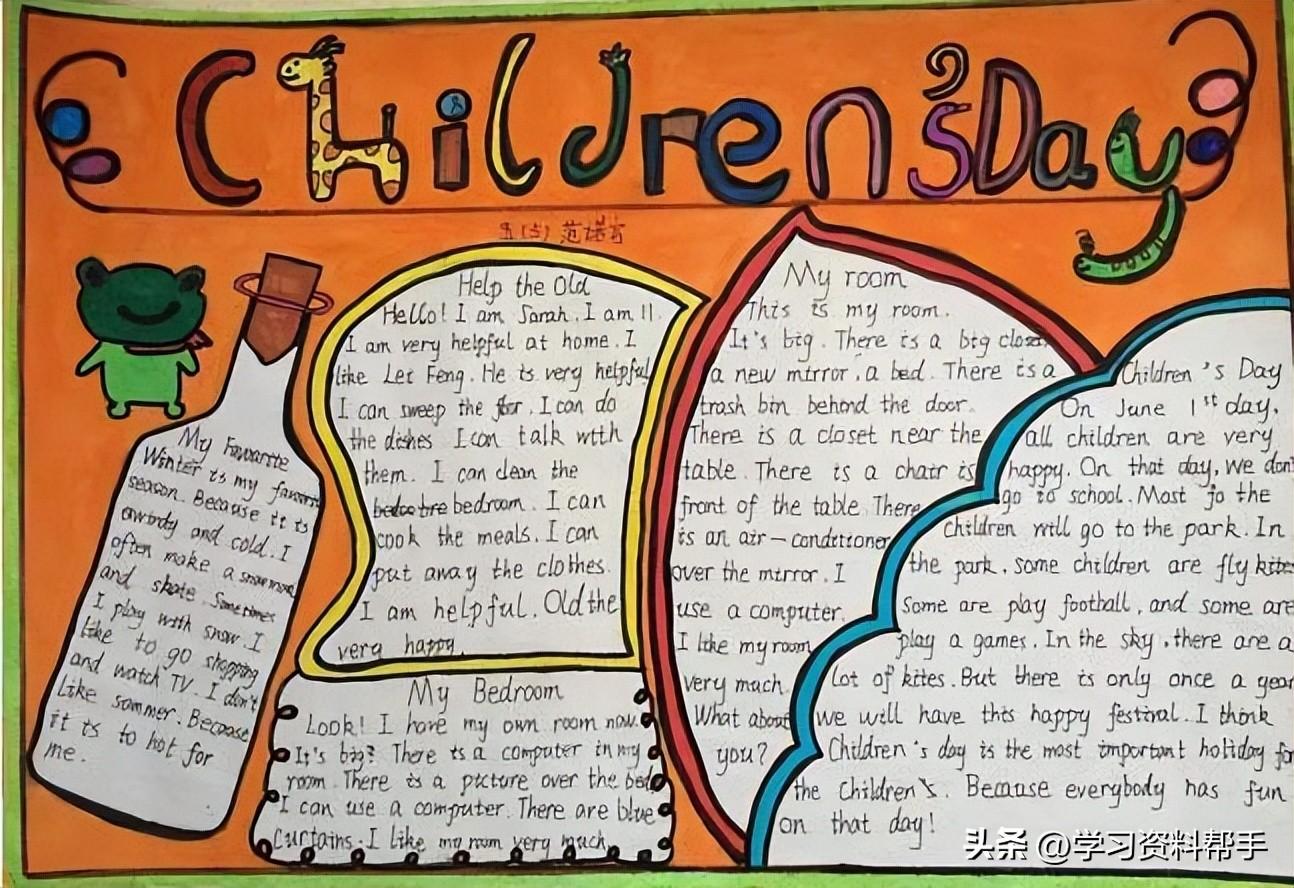 Children's Day
Help the Old
Hello! I am Sarah. I am 11.
I am very helpful at home. I
like Lei Feng. He is very helpful
I can sweep the floor. I can do
the dishes I can talk with
them. I can clean the
bedroom. I can
cook the meals. I can
put away the clothes.
I am helpful. Old the
very happy.
My room
This is my room.
It's big. There is a big closet
a new mirror, a bed. There is a
trash bin behind the door.
There is a closet near the
table. There is a chair is
front of the table. There
is an air-conditioner
over the mirror. I
use a computer.
I like my room
very much.
What about
you?
Children's Day
On June 1st day,
all children are very
happy. On that day, we don't
go to school. Most jo the
children will go to the park. In
the park, some children are fly kites
Some are play football, and some are
play a games. In the sky, there are a
lot of kites. But there is only once a year
we will have this happy festival. I think
Children's day is the most important holiday for
the children's. Because everybody has fun
on that day!
My Favourite
Winter is my favourite
season. Because it is
windy and cold. I
often make a snowman
and skate. Sometimes
I play with snow. I
like to go shopping
and watch TV. I don't
like summer. Because
it is to hot for
me.
My Bedroom
Look! I have my own room now.
It's big? There is a computer in my
room. There is a picture over the bed
I can use a computer. There are blue
curtains. I like my room very much.
头条 @学习资料帮手